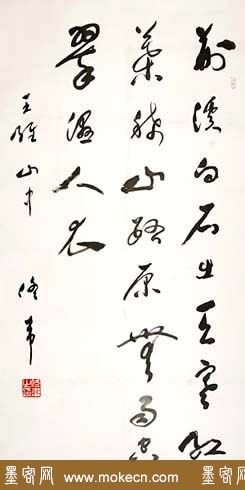 荆溪白石出天寒红
葉稀山路原無雨空
翠濕人衣
王維 山中
墨客网 www.mokecn.com 墨客网